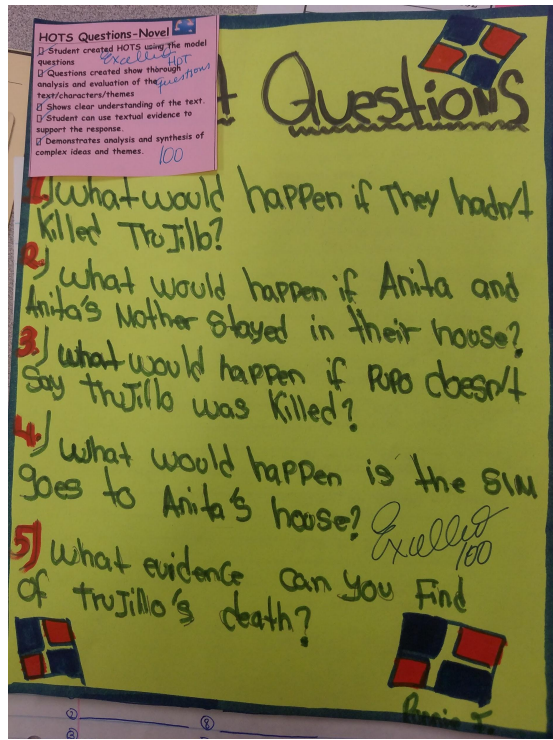 HOTS Questions-Novel
Student created HOTS using the model
questions
Excellent
HOT
questions
Questions created show thorough
analysis and evaluation of the
text/characters/themes
Shows clear understanding of the text.
Student can use textual evidence to
support the response.
Demonstrates analysis and synthesis of
complex ideas and themes.
100
Questions
1. What would happen if They hadn't
Killed Trujillo?
2.) What would happen if Anita and
Anita's Mother stayed in their house?
3.) What would happen if Pupo doesn't
say trujillo was killed?
4.) What would happen is the SIM
goes to Anita's house?
Excellent
100
5) What evidence can you Find
of trujillo's death?
②
⑧
③